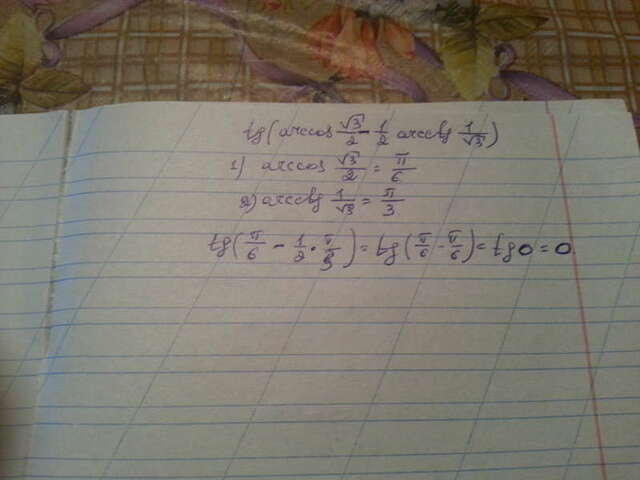 tg(arccos √3/2 - 1/2 arcctg 1/√3)
1) arccos √3/2 = π/6
2) arcctg 1/√3 = π/3
tg(π/6 - 1/2 · π/3) = tg(π/6 - π/6) = tg0 = 0.